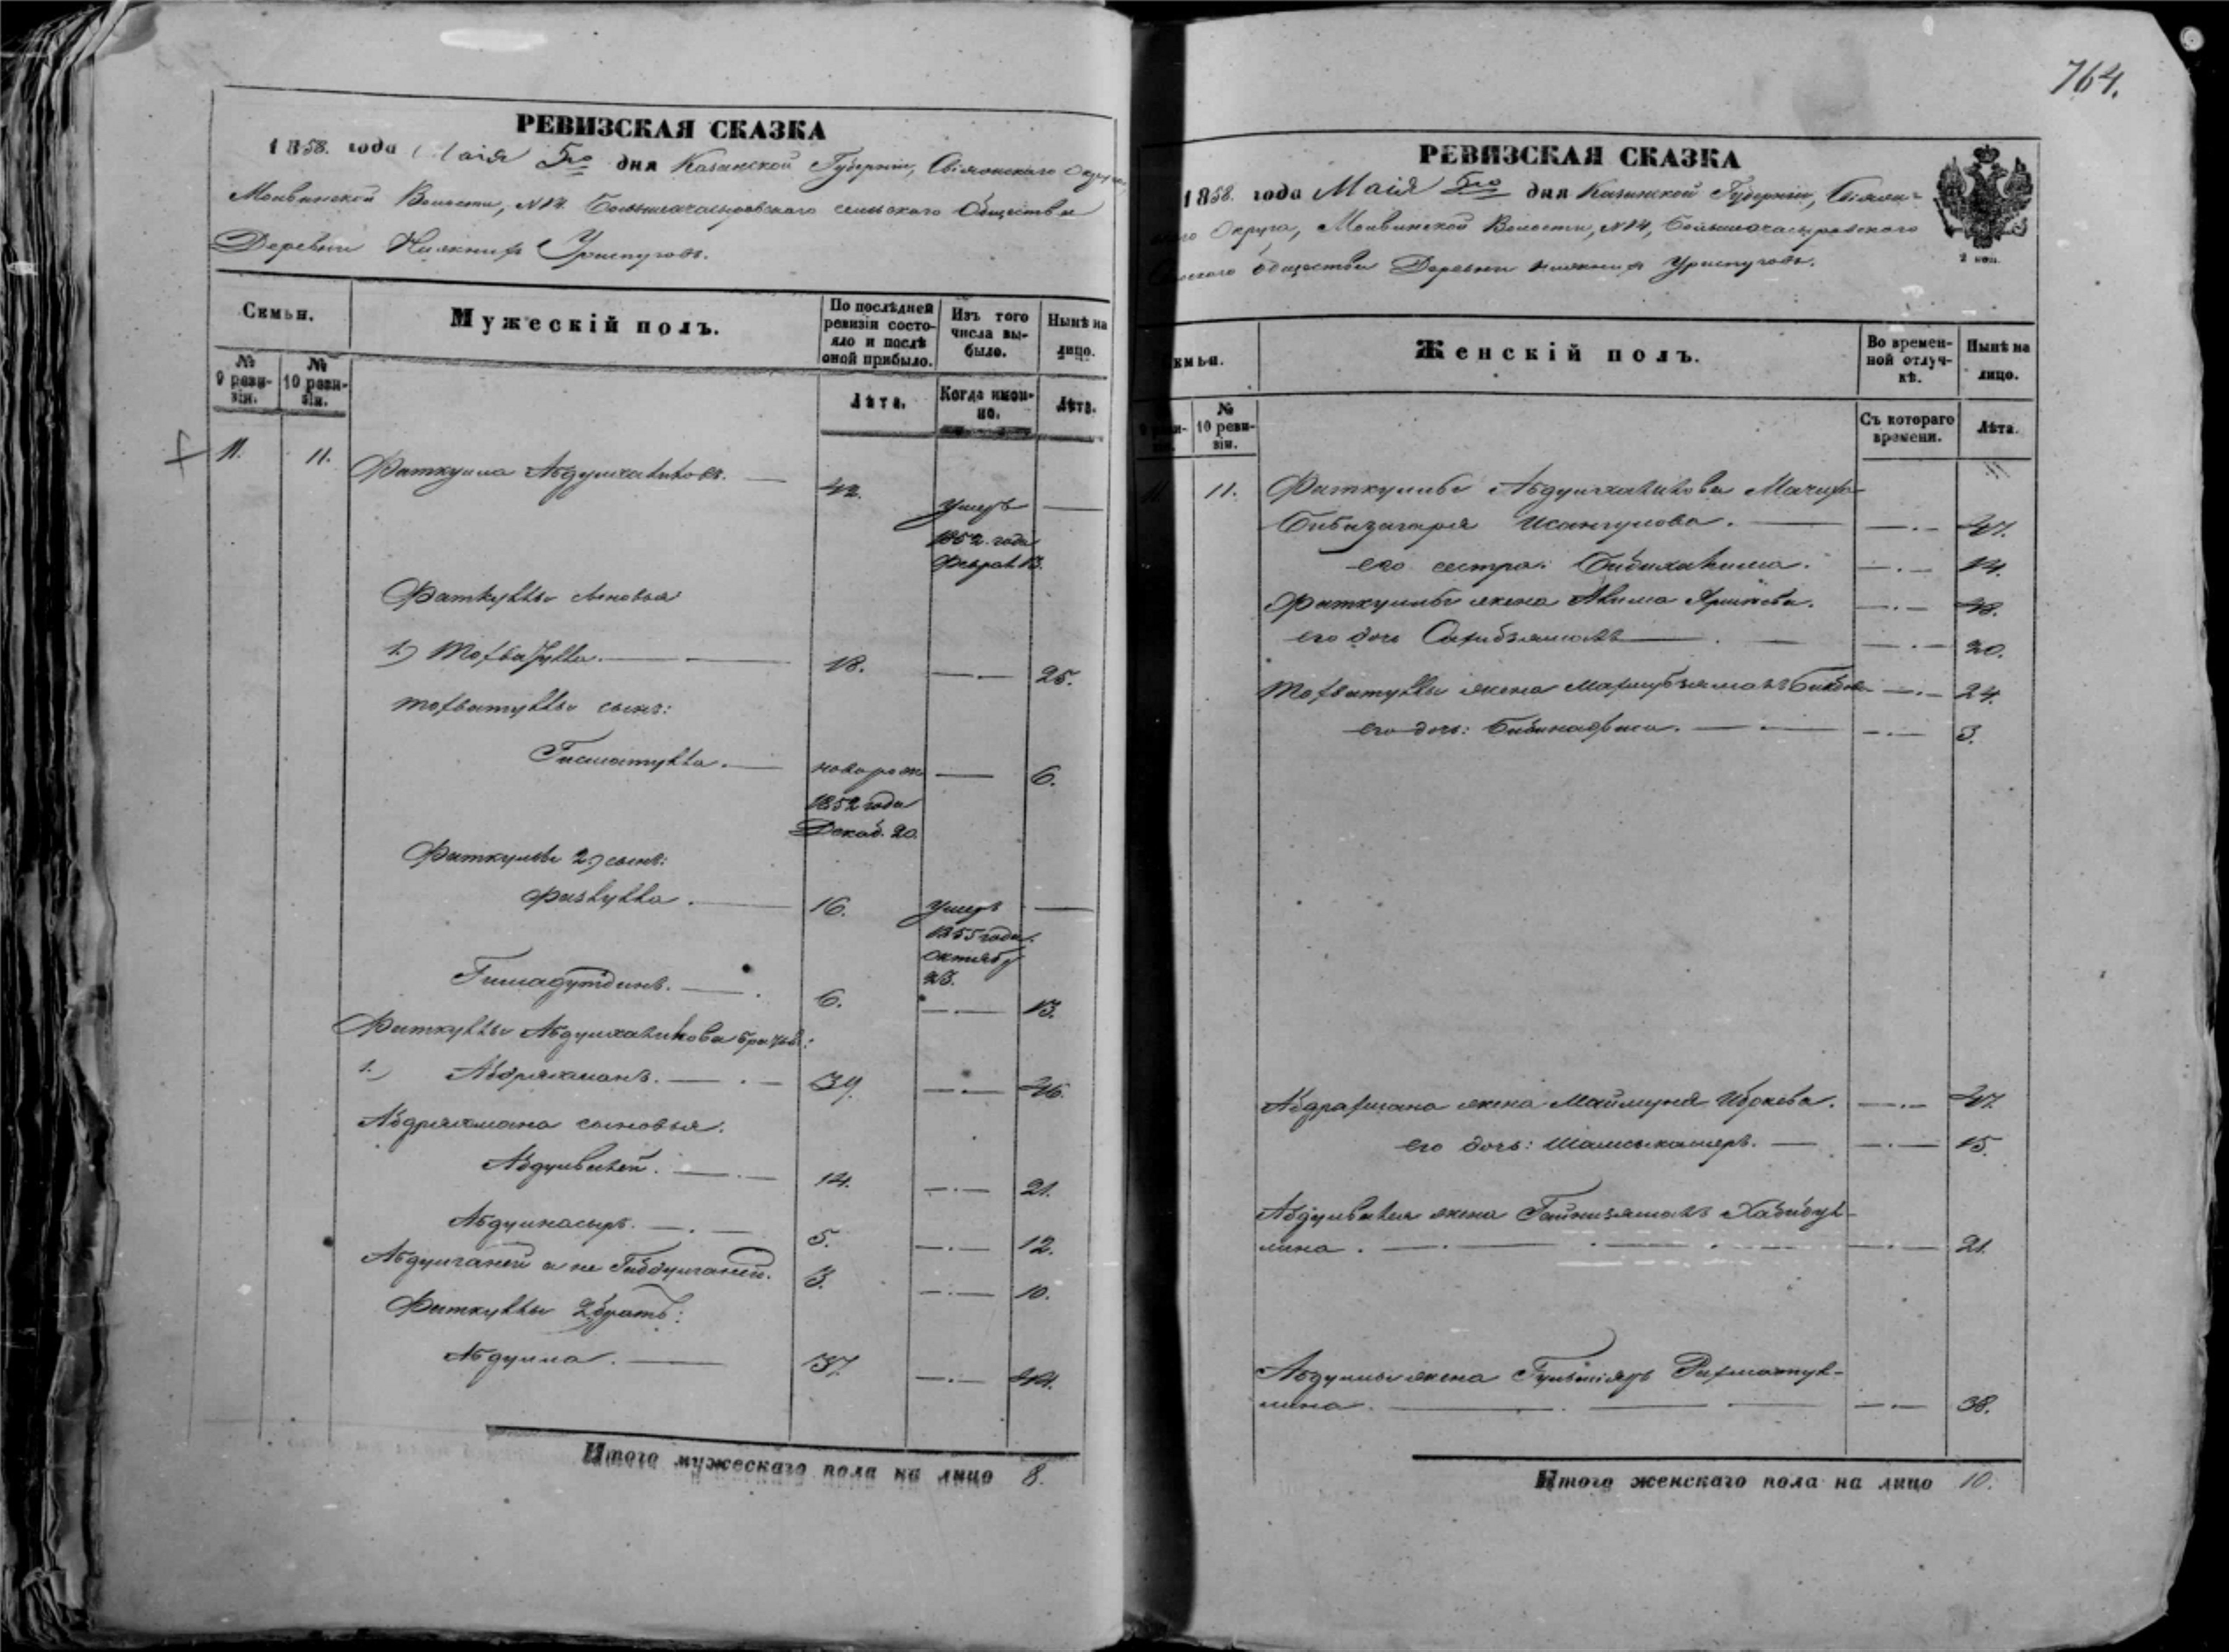 РЕВИЗСКАЯ СКАЗКА
1858. года Маія 5го дня Казанской Губерніи, Свіяжскаго Округа,
Волости, № 14. сельскаго Общества
Деревни Ураспуговъ.
Семьи.
Мужескій полъ.
По послѣдней ревизіи состо-
яло и послѣ
оной прибыло.
Изъ того
числа вы-
было.
Нынѣ на
лицо.
№
9 реви-
зіи.
№
10 реви-
зіи.
Лѣта.
Когда имен-
но.
Лѣта.
11. 11. Фаткулла Абдулхаликовъ. 42. умеръ
1852 года
Феврал. 13.
Фаткуллы сыновья
1.) 18. 25.
сынъ:
Гисматулла. новорож. 6.
1852 года
Декаб. 20.
Фаткуллы 2.) сынъ:
Файзулла. 16. умеръ
1855 года
октября
23.
Гимадутдинъ. 6. 13.
Фаткуллы Абдулхаликова братья:
1.) Абдряхманъ. 39. 46.
Абдряхмана сыновья:
Абдулвалей. 14. 21.
Абдулнасыръ. 5. 12.
Абдулганей а не Габдулганей. 3. 10.
Фаткуллы 2. братъ:
Абдулла. 37. 44.
Итого мужескаго пола на лицо 8.
764.
РЕВИЗСКАЯ СКАЗКА
1858. года Маія 5го дня Казанской Губерніи, Свіяж-
скаго Округа, Волости, № 14,
общества Деревни Ураспуговъ.
2 коп.
Семьи.
Женскій полъ.
Во времен-
ной отлуч-
кѣ.
Нынѣ на
лицо.
№
10 реви-
зіи.
Съ котораго
времени.
Лѣта.
11 11. Фаткуллы Абдулхаликова Мачиха
Бибизагиря 47.
его сестра: Бибихалима. 14.
Фаткуллы жена Алима 48.
его дочь 20.
жена 24.
его дочь: Бибинафиса. 3.
Абдрахмана жена Маймуня 47.
его дочь: Шамсыкамеръ. 15.
Абдулвалея жена Гайнизямалъ Хабибул-
лина. 21.
Абдуллы жена Рахматул-
лина. 38.
Итого женскаго пола на лицо 10.